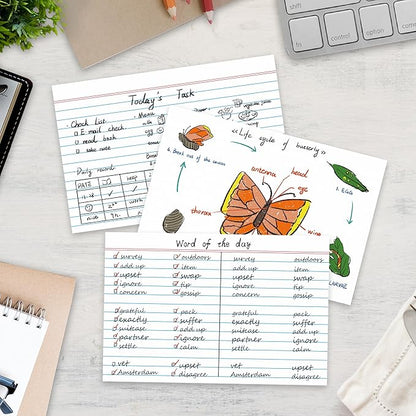 control
option
Today's Task
Check List
Month
E-mail check.
read book
take note
Daily record
DATE
<<Life cycle of butterfly>>
antenna
head
eye
thorax
wing
Word of the day
survey outdoors survey outdoors
add up item add up item
upset swap upset swap
ignore tip ignore tip
concern gossip concern gossip
grateful pack grateful pack
exactly suffer exactly suffer
suitcase add up suitcase add up
partner ignore partner ignore
settle calm settle calm
vet upset vet upset
Amsterdam disagree Amsterdam disagree